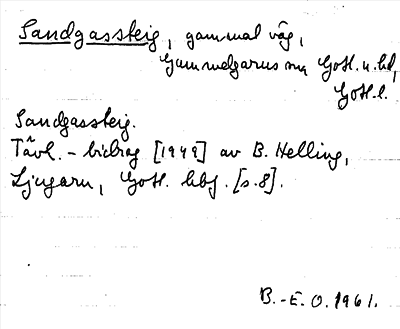 Sandgassteig, gammal väg,
Gammelgarns sn, Gotl. n. hd,
Gotl. l.
Sandgassteig.
Tävl.-bidrag [1949] av B. Helling,
Ljugarn, Gotl. hbf. [s. 8].
B.-E. O. 1961.